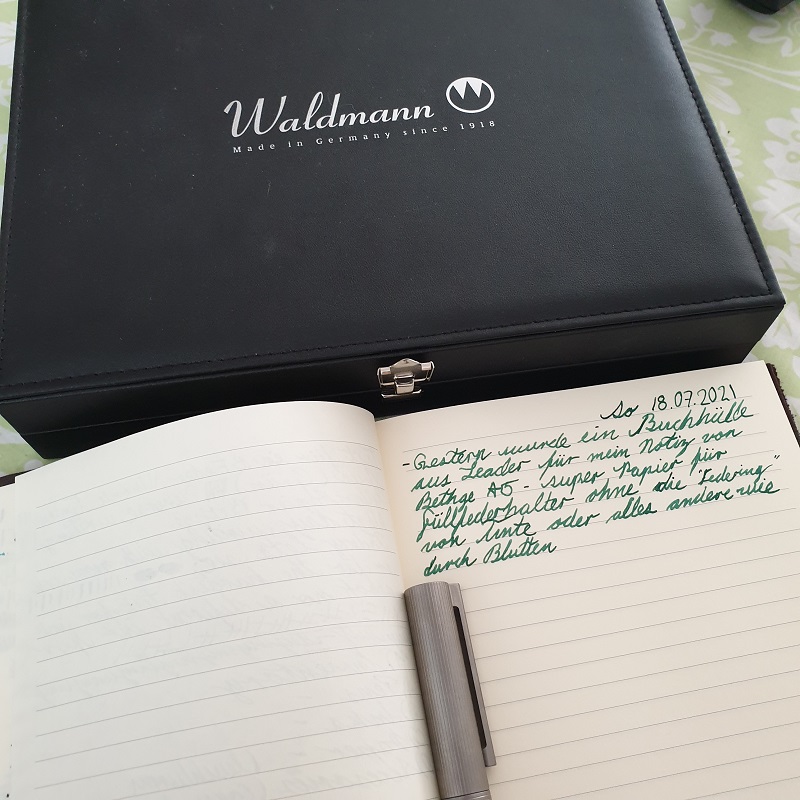 Waldmann
Made in Germany since 1918
So 18.07.2021
- Gestern wurde ein Buchhülle
aus Leader für mein Notiz von
Bethge AG - super Papier für
füllfederhalter ohne die "Federing"
von Tinte oder alles andere wie
durch Blutten